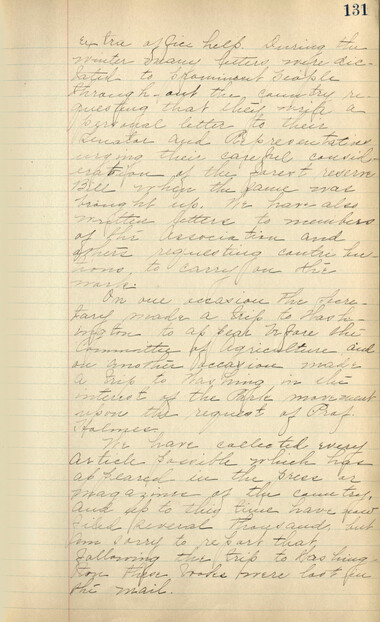 131
extra office help. During the
winter many letters were dic-
tated to prominent people
through-out the country re-
questing that they write a
personal letter to their
Senator and Representatives
urging their careful consid-
eration of the forest reserve
Bill when the same was
brought up. We have also
written letters to members
of the Association and
others requesting contribu-
tions, to carry on the
work.
On one occasion the Secre-
tary made a trip to Wash-
ington to appear before the
Committee of Agriculture and
on another occasion made
a trip to Washing. in the
interest of the Park movement
upon the request of Prof.
Holmes.
We have collected every
article possible which has
appeared in the press or
magazines of the country,
and up to this time have
filed several thousand, but
am sorry to report that
following the trip to Washing-
ton these books were lost in
the mail.